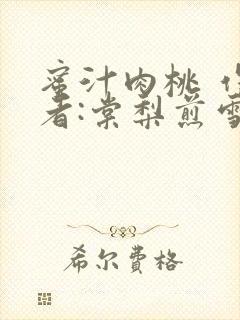 蜜汁肉桃
者:棠梨煎雪
希尔费格